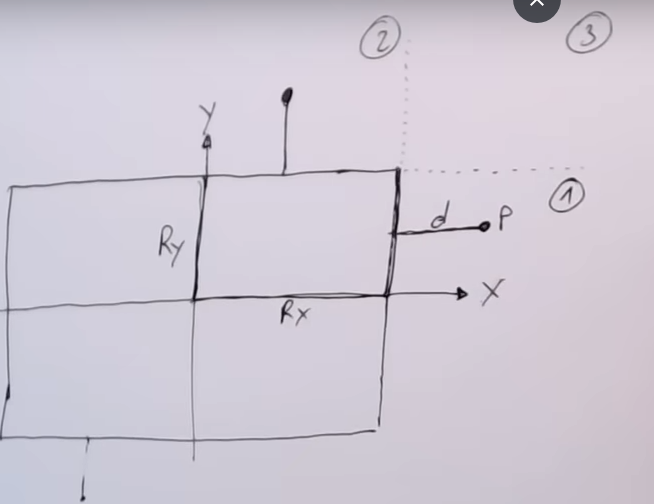 2
3
Y
1
d P
Ry
X
Rx